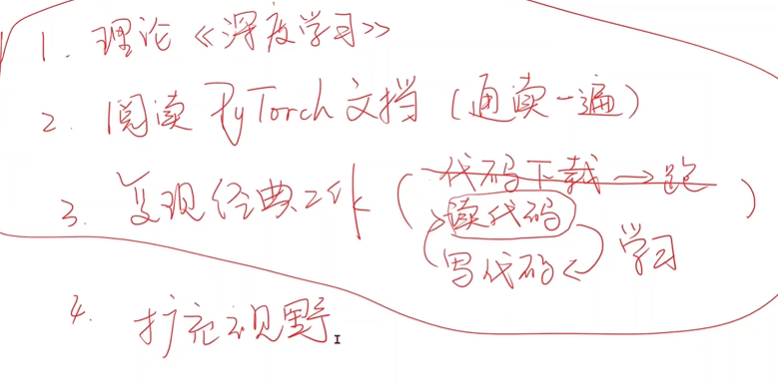 1. 理论《深度学习》
2. 阅读 PyTorch 文档（通读一遍）
3. 复现经典工作（代码下载→跑）
读代码
写代码 学习
4. 扩充视野